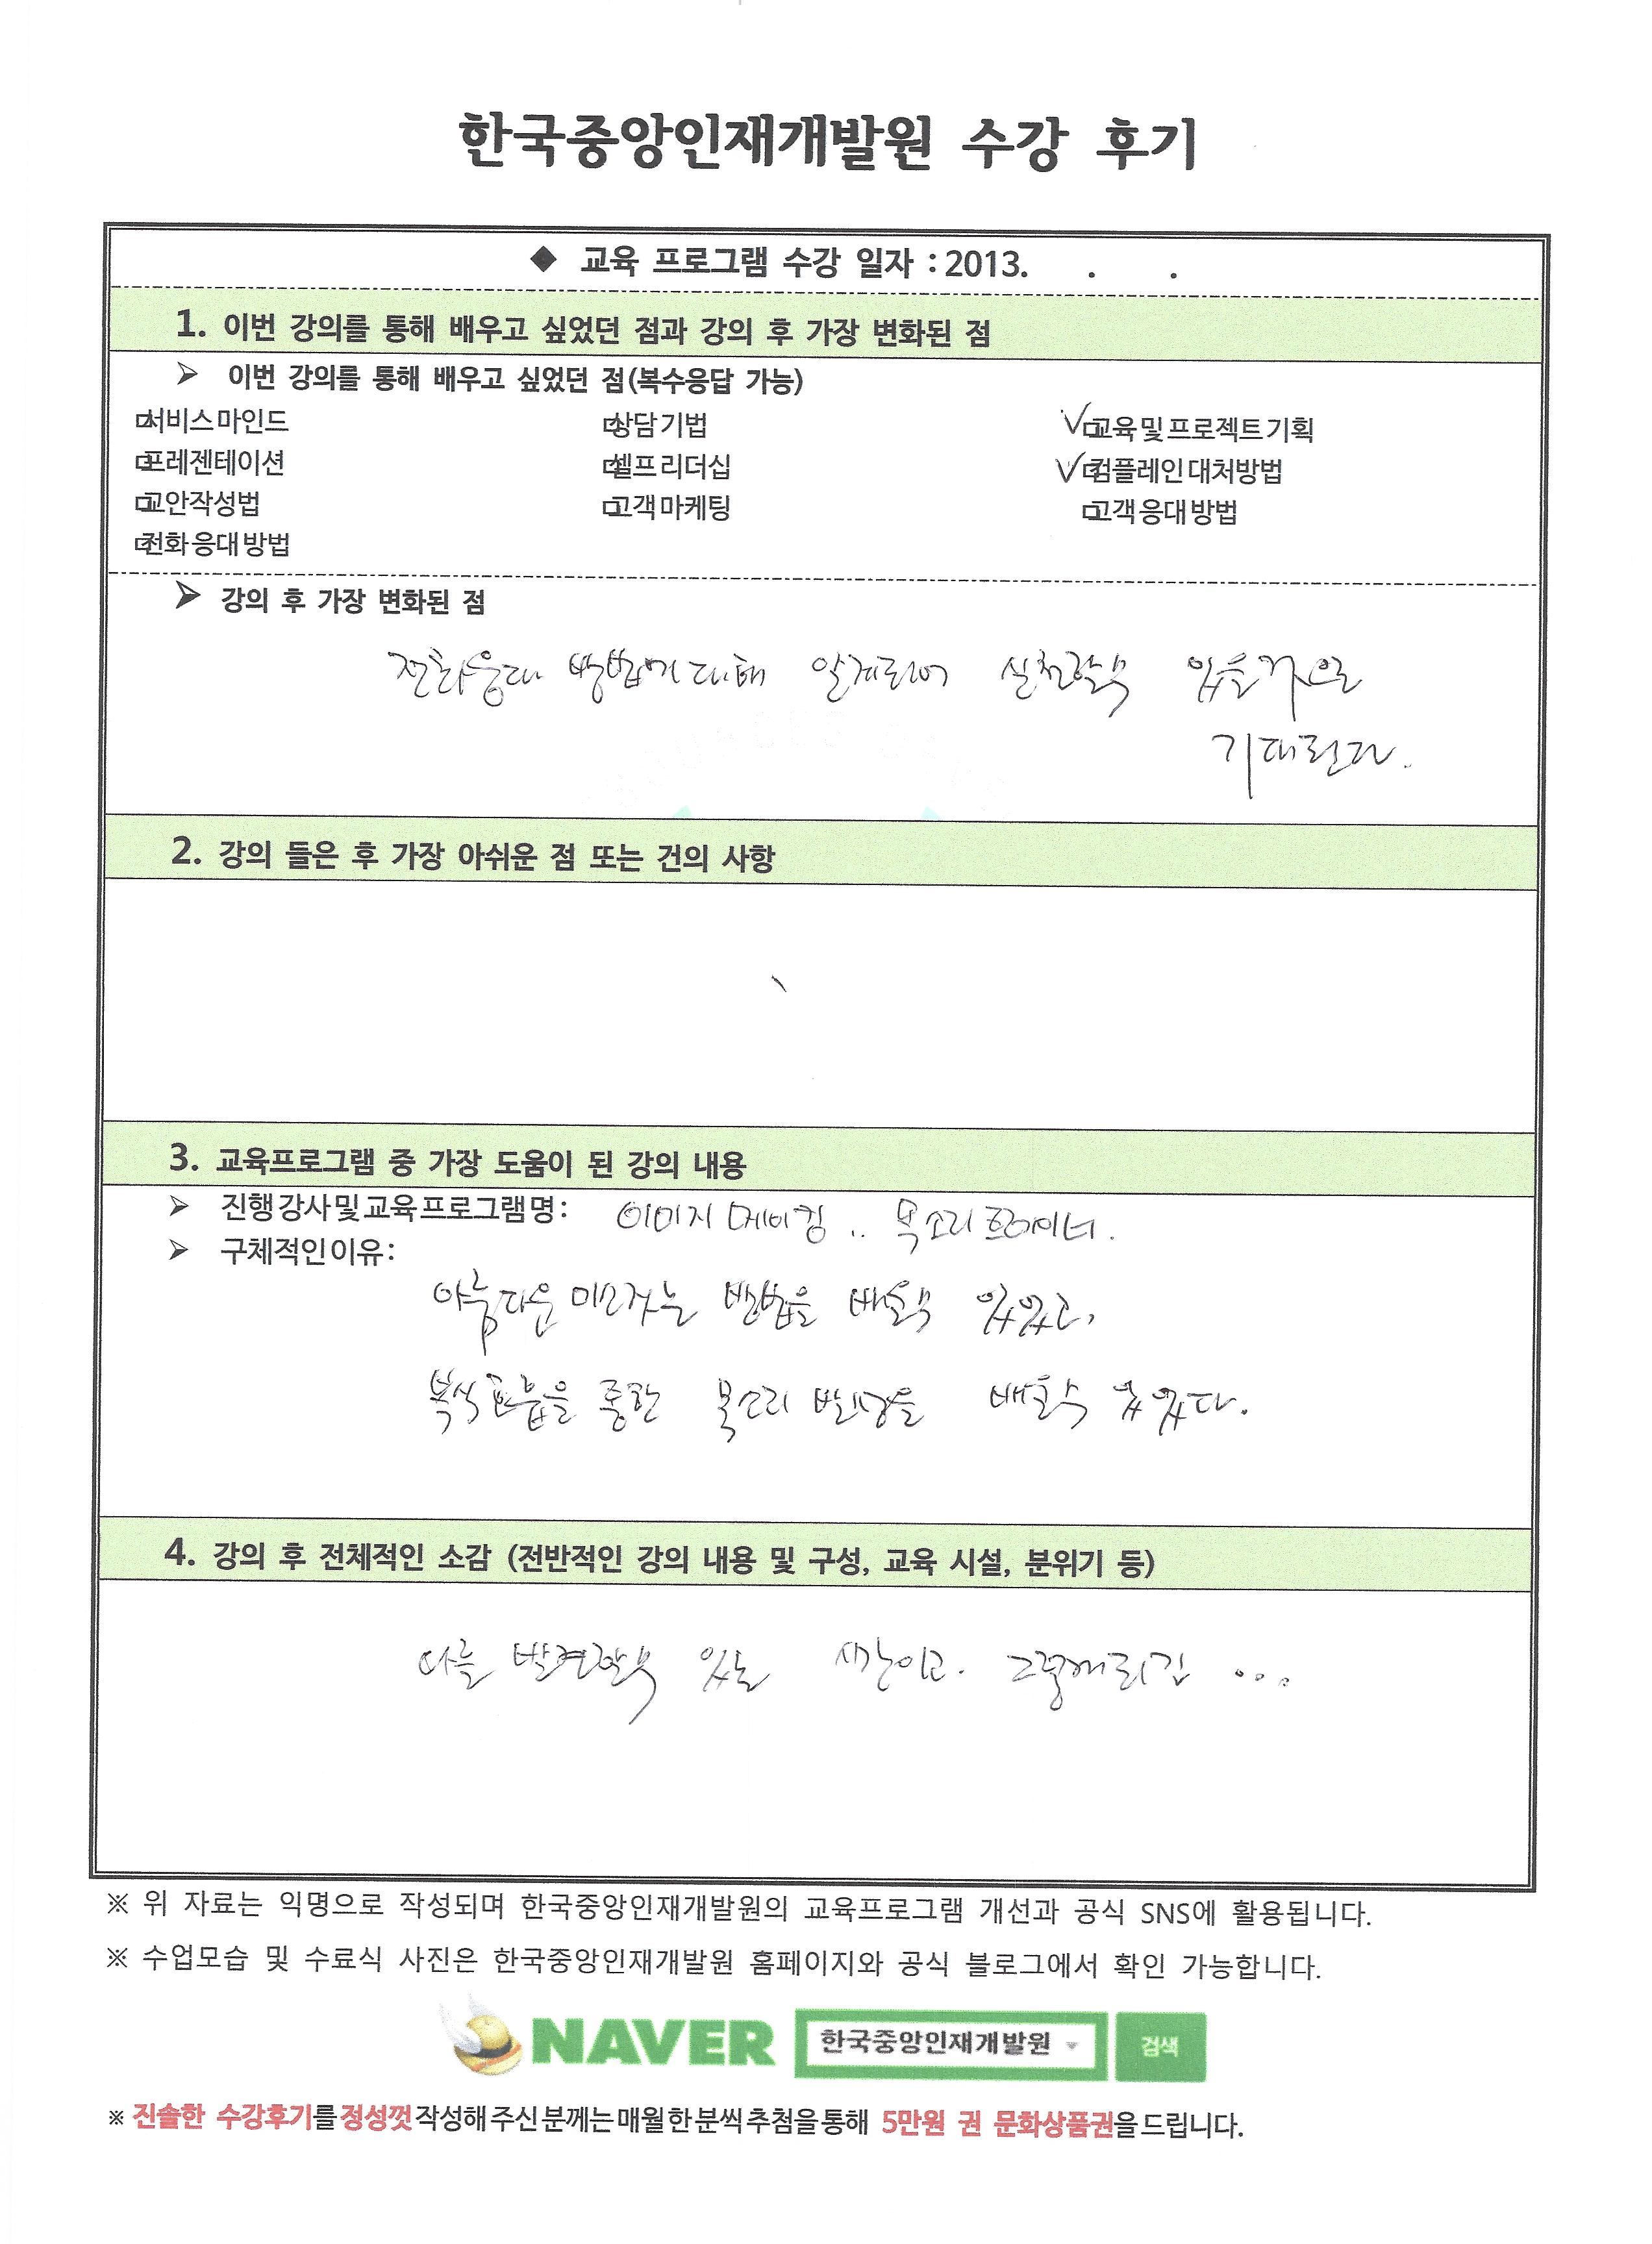 한국중앙인재개발원 수강 후기
◆ 교육 프로그램 수강 일자 : 2013. . .
1. 이번 강의를 통해 배우고 싶었던 점과 강의 후 가장 변화된 점
➢ 이번 강의를 통해 배우고 싶었던 점(복수응답 가능)
□서비스마인드 □상담기법 ✓□교육및프로젝트기획
□프레젠테이션 □셀프리더십 ✓□컴플레인대처방법
□교안작성법 □고객마케팅 □고객응대방법
□전화응대방법
➢ 강의 후 가장 변화된 점
전화응대 방법에 대해 알게되어 실천할수 있을거으로
기대된다.
2. 강의 들은 후 가장 아쉬운 점 또는 건의 사항
3. 교육프로그램 중 가장 도움이 된 강의 내용
➢ 진행강사및교육프로그램명: 이미지 메이킹 .. 목소리 트레이너.
➢ 구체적인이유:
아름다운 미소짓는 방법을 배울수 있었고,
복식호흡을 통한 목소리 발성을 배울수 있었다.
4. 강의 후 전체적인 소감 (전반적인 강의 내용 및 구성, 교육 시설, 분위기 등)
나를 발견할수 있는 시간이고.
※ 위 자료는 익명으로 작성되며 한국중앙인재개발원의 교육프로그램 개선과 공식 SNS에 활용됩니다.
※ 수업모습 및 수료식 사진은 한국중앙인재개발원 홈페이지와 공식 블로그에서 확인 가능합니다.
NAVER 한국중앙인재개발원 검색
※ 진솔한 수강후기를 정성껏 작성해주신분께는매월한분씩추첨을통해 5만원 권 문화상품권을드립니다.